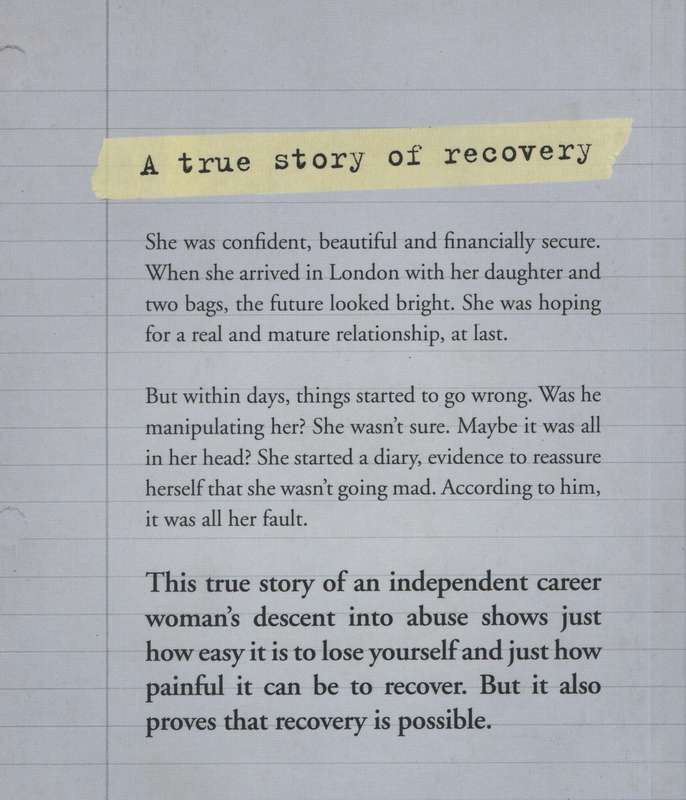 A true story of recovery
She was confident, beautiful and financially secure.
When she arrived in London with her daughter and
two bags, the future looked bright. She was hoping
for a real and mature relationship, at last.
But within days, things started to go wrong. Was he
manipulating her? She wasn’t sure. Maybe it was all
in her head? She started a diary, evidence to reassure
herself that she wasn’t going mad. According to him,
it was all her fault.
This true story of an independent career
woman’s descent into abuse shows just
how easy it is to lose yourself and just how
painful it can be to recover. But it also
proves that recovery is possible.